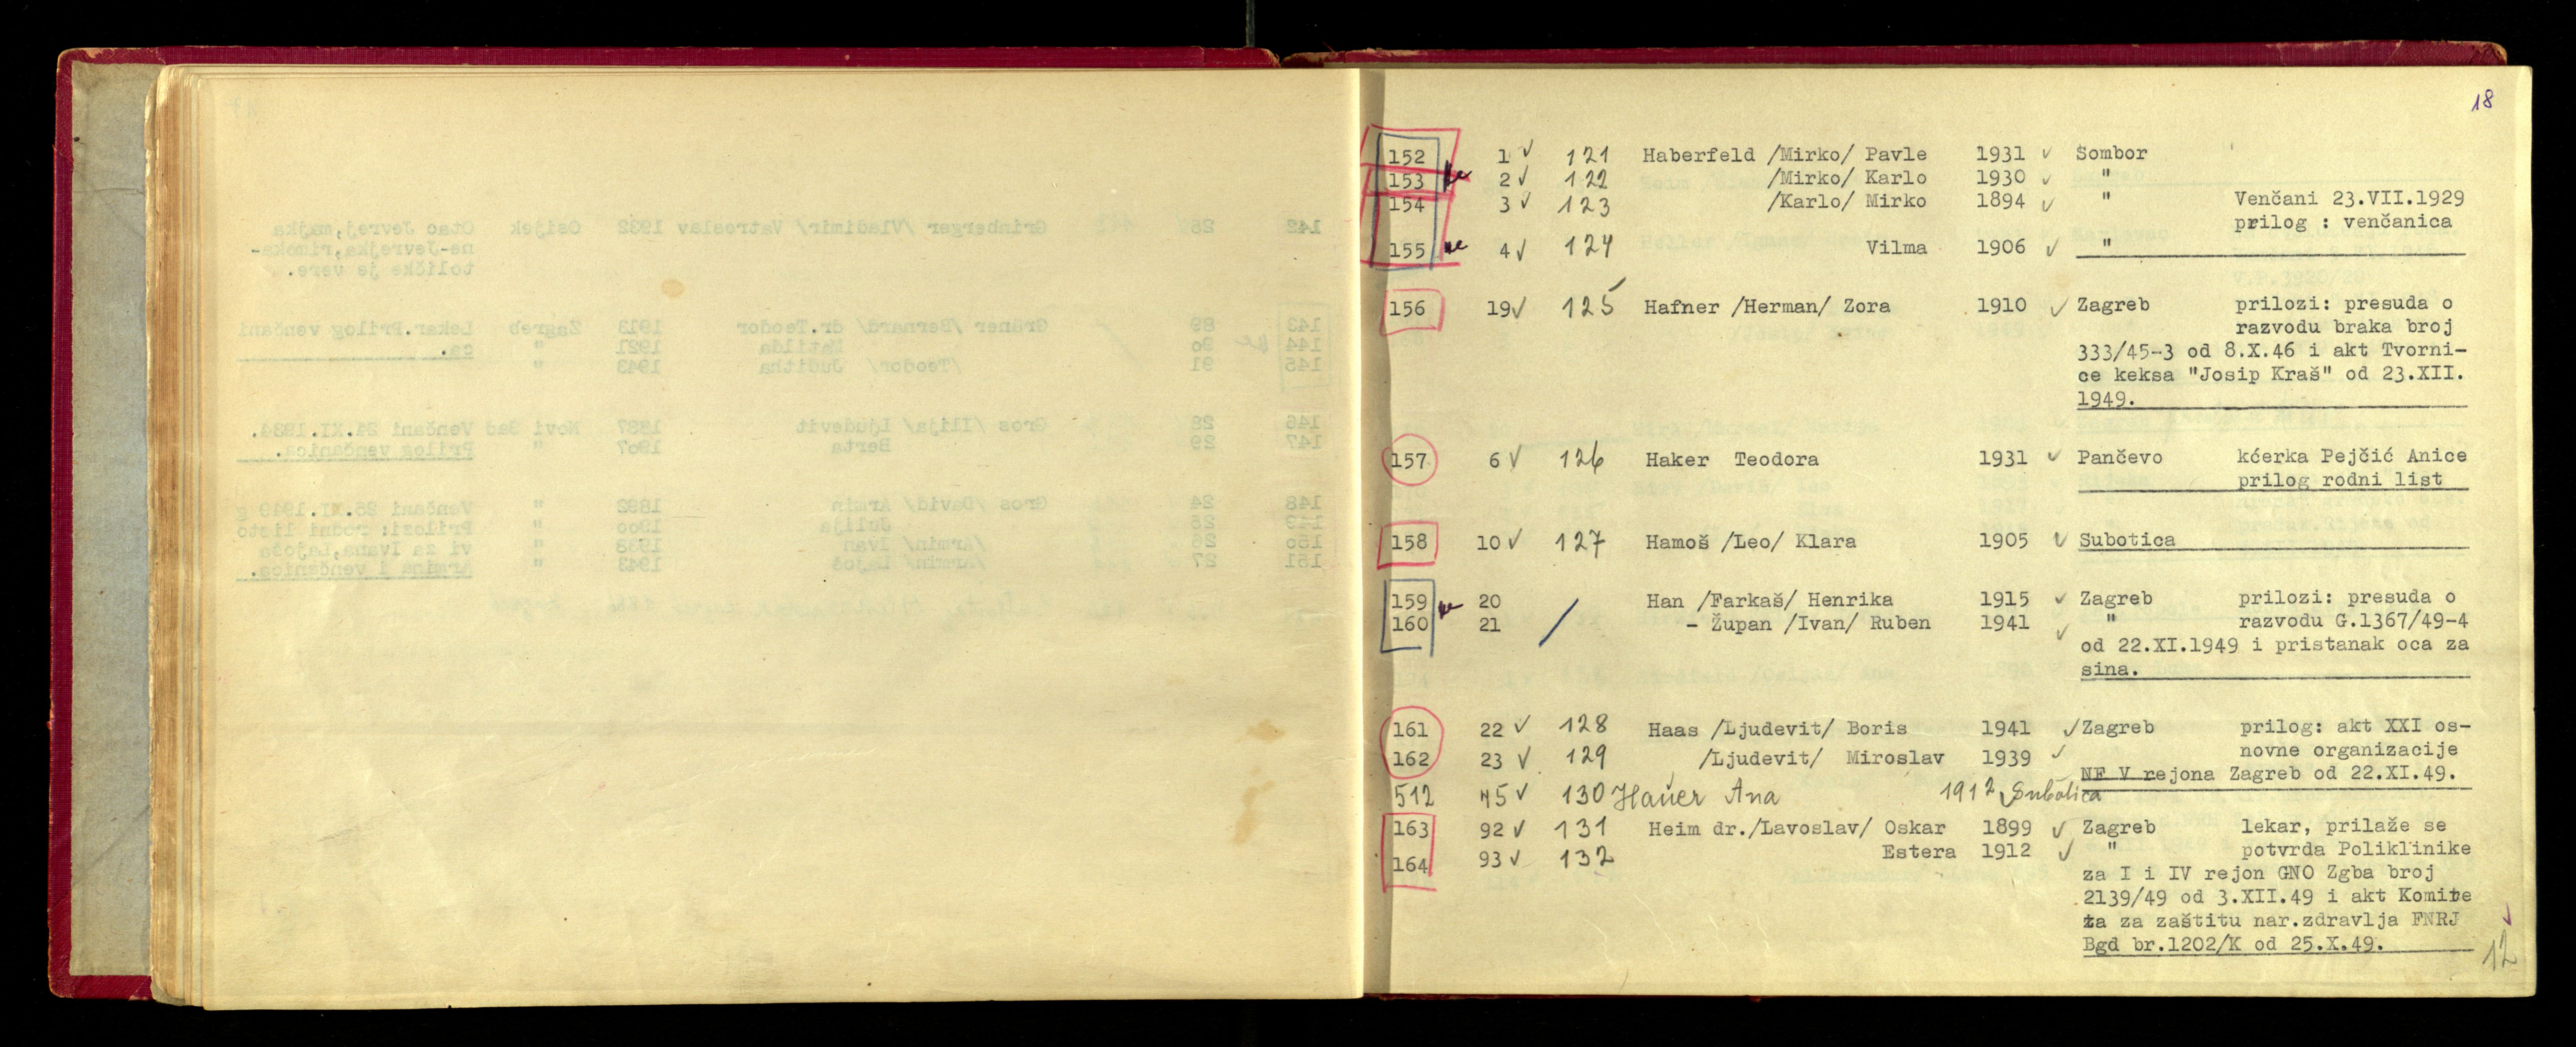 18
152 1 ✓ 121 Haberfeld /Mirko/ Pavle 1931 ✓ Sombor
153 ne 2 ✓ 122 /Mirko/ Karlo 1930 ✓ "
154 3 ✓ 123 /Karlo/ Mirko 1894 ✓ " Venčani 23.VII.1929
prilog : venčanica
155 ne 4 ✓ 124 Vilma 1906 ✓ "
156 19 ✓ 125 Hafner /Herman/ Zora 1910 ✓ Zagreb prilozi: presuda o
razvodu braka broj
333/45-3 od 8.X.46 i akt Tvorni-
ce keksa "Josip Kraš" od 23.XII.
1949.
157 6 ✓ 126 Haker Teodora 1931 ✓ Pančevo kćerka Pejčić Anice
prilog rodni list
158 10 ✓ 127 Hamoš /Leo/ Klara 1905 ✓ Subotica
159 ne 20 / Han /Farkaš/ Henrika 1915 ✓ Zagreb prilozi: presuda o
160 21 - Župan /Ivan/ Ruben 1941 ✓ " razvodu G.1367/49-4
od 22.XI.1949 i pristanak oca za
sina.
161 22 ✓ 128 Haas /Ljudevit/ Boris 1941 ✓ Zagreb prilog: akt XXI os-
162 23 ✓ 129 /Ljudevit/ Miroslav 1939 ✓ novne organizacije
NF V rejona Zagreb od 22.XI.49.
512 45 ✓ 130 Hauer Ana 1912 ✓ Subotica
163 92 ✓ 131 Heim dr./Lavoslav/ Oskar 1899 ✓ Zagreb lekar, prilaže se
164 93 ✓ 132 Estera 1912 ✓ " potvrda Poliklinike
za I i IV rejon GNO Zgba broj
2139/49 od 3.XII.49 i akt Komite
ta za zaštitu nar.zdravlja FNRJ
Bgd br.1202/K od 25.X.49.
12